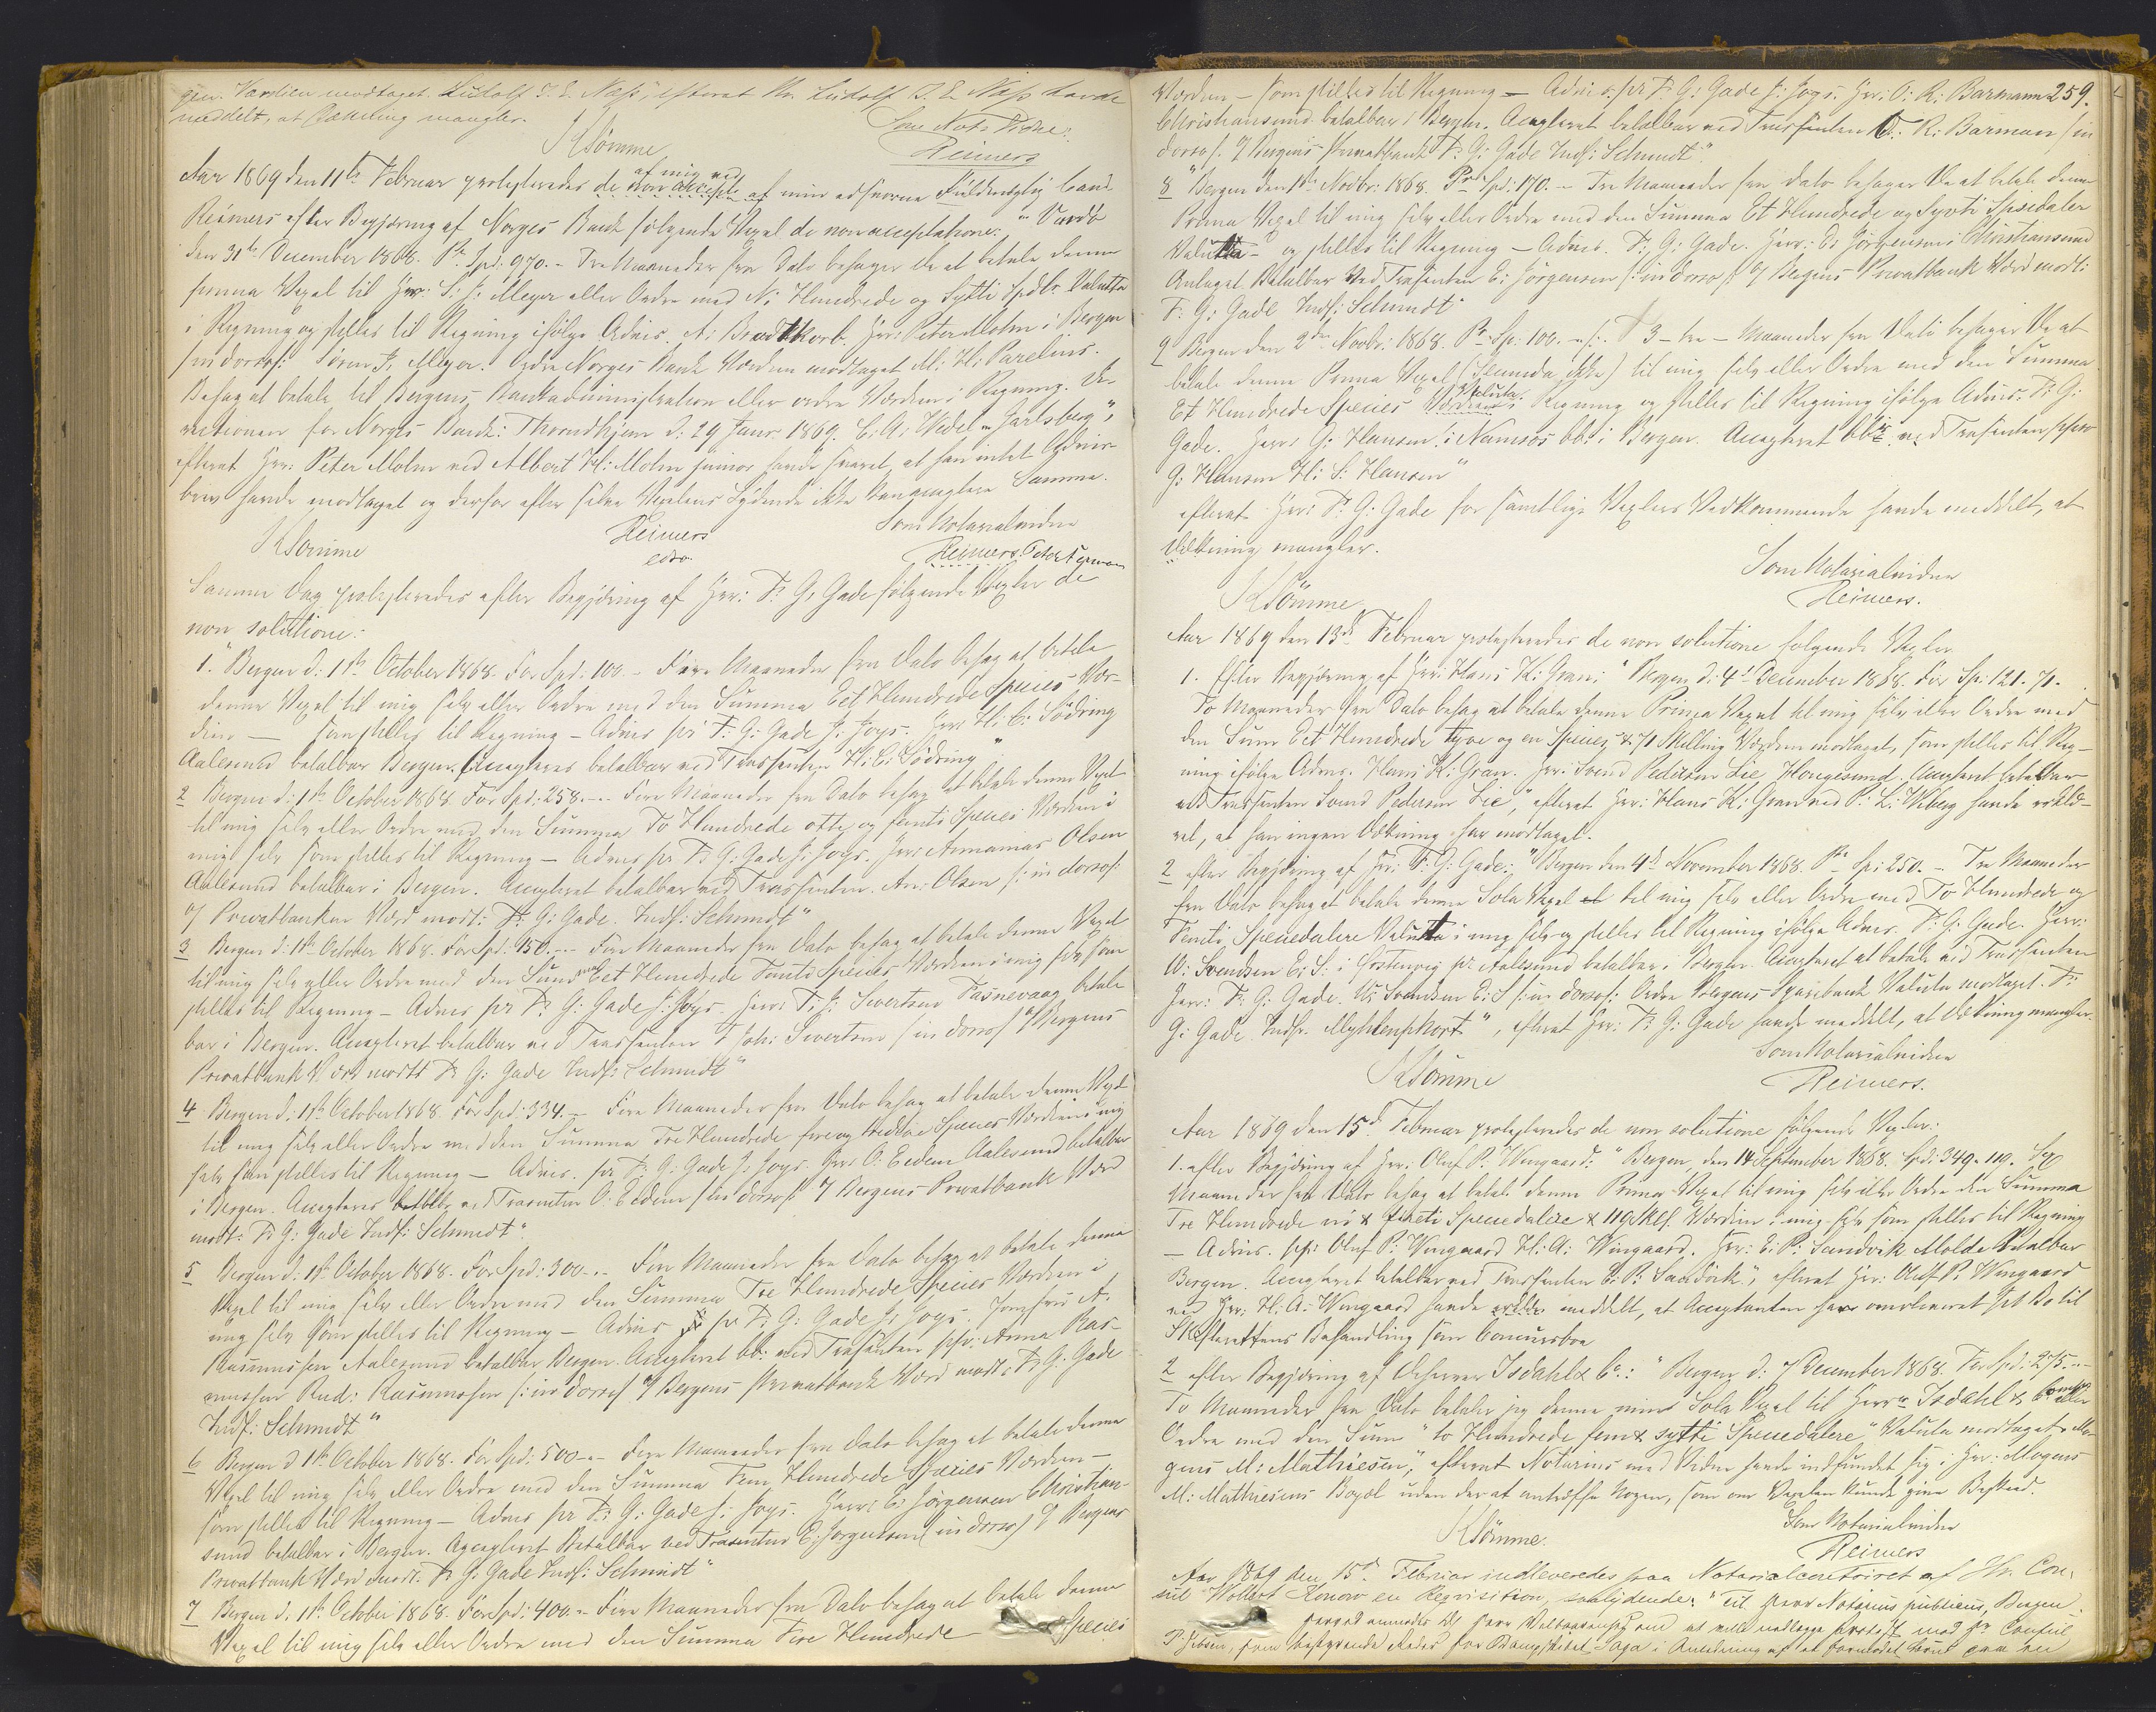 gen. Værdien modtaget. Ludolf J. E. Nass, efterat Hr. Ludolf J. E. Nass havde
meddelt, at Dækning mangler.
Som Not: Vidne
KSömme
Reimers
Aar 1869 den 11te Februar protesteredes de non accepte af mig ved af min edsvorne Fuldmægtig Cand.
Reimers efter Begjæring af Norges Bank følgende Vexel de non acceptatione: "Vardö
den 31te December 1868. Pr. Spd: 970.- Tre Maaneder fra Dato behager De at betale denne
prima Vexel til Herr: S: J: Meyer eller Ordre med Ni Hundrede og Sytti Spdlr. Valutta
i Regning og stilles til Regning ifølge Advis. A: Brodtkorb. Herr: Peter Mohn i Bergen
/:in dorso:/ Sören J. Meyer. Ordre Norges Bank Værdien modtaget M: H: Parelius.
Behag at betale til Bergens Bankadministration eller ordre Værdien i Regning. Di-
rectionen for Norges Bank: Throndhjem d: 29 Janr. 1869. C. A: Wedel-Jarlsberg",
efterat Herr: Peter Mohn ved Albert H: Mohn junior havde svaret, at han intet Advis-
brev havde modtaget og derfor efter selve Vexelens Lydende ikke kan acceptere Samme.
Som Notarialvidne
KSömme
Reimers
edsv.
Reimers.
Samme Dag protesteredes efter Begjæring af Herr: F. G. Gade følgende Vexler de
non solutione:
1. "Bergen d: 11te October 1868. For Spd: 100.- Fire Maaneder fra Dato behag at betale
denne Vexel til mig selv eller Ordre med den Summa Eet Hundrede Species Vær-
dien — som stilles til Regning - Advis pr F: G: Gade J: Joys. Herr H: C: Södring
Aalesund betalbar Bergen. Accepteres betalbar ved Trassenten H: C: Södring"
2 Bergen d: 11te October 1868. For Spd: 258.-- Fire Maaneder fra Dato behag at betale denne Vexel
til mig selv eller Ordre med den Summa To Hundrede otte og femti Species Værdien i
mig selv som stilles til Regning - Advis pr F: G: Gade J: Joys. Herr Annanias Olsen
Aalesund betalbar i Bergen. Accepteret betalbar ved Trassenten. An: Olsen /:in dorso:/
Privatbanken Værd modt: F: G: Gade. Indf: Schmidt"
3 Bergen d: 11te October 1868. For Spd: 150.-- Fire Maaneder fra Dato behag at betale denne Vexel
til mig selv eller Ordre med den Summa Eet Hundrede Femti Species Værdien i mig selv som
stilles til Regning - Advis pr F: G: Gade J: Joys. Herr: T: J: Sivertsen Tasnevaag betal-
bar i Bergen. Accepteret betalbar ved Trassenten T Joh: Sivertsen /in dorso/ Bergens
Privatbank Værd modtt F: G: Gade Indf: Schmidt"
4 Bergen d: 11te October 1868. For Spd: 334.- Fire Maaneder fra Dato behag at betale denne Vexel
til mig selv eller Ordre med den Summa Tre Hundrede fire og tredive Species Værdien i mig
selv som stilles til Regning - Advis. pr F: G: Gade J: Joys. Herr O: Eidem Aalesund betalbar
i Bergen. Accepteres betalb. ved Trassenten O: Eidem /in dorso/ Bergens Privatbank Værd
modt: F: G: Gade Indf: Schmidt"
5 Bergen d: 11te October 1868. For Spd: 300.-- Fire Maaneder fra Dato behag at betale denne
Vexel til mig selv eller Ordre med den Summa Tre Hundrede Species Værdien i
mig selv som stilles til Regning - Advis pr F: G: Gade J: Joys. Jomfru A.
Rasmussen Aalesund betalbar Bergen. Accepteret bb: ved Trassenten pp: Anna Ras-
mussen Rud: Rasmussen /:in dorso/ Bergens Privatbank Værd modt: F: G: Gade
Indf: Schmidt"
6 Bergen d 11te October 1868. For Spd: 500.-- Fire Maaneder fra Dato behag at betale denne
Vexel til mig selv eller Ordre med den Summa Fem Hundrede Species Værdien -
som stilles til Regning - Advis pr F: G: Gade J: Joys. Herr: E: Jörgensen Christian-
sund betalbar i Bergen. Accepteret Betalbar ved Trassenten E: Jorgensen /in dorso/ Bergens
Privatbank Værd modt. F. G: Gade Indf: Schmidt"
7 Bergen d. 11te October 1868. For Spd: 400.- Fire Maaneder fra Dato behag at betale denne
Vexel til mig selv eller Ordre med den Summa Fire Hundrede Species
259.
Værdien - som stilles til Regning - Advis. pr F: G: Gade J: Joys. Herr: O: R: Barmann
Christiansund betalbar i Bergen. Accepteret betalbar ved Trassenten O: R: Barman /in
dorso/. Bergens Privatbank F: G: Gade Indf: Schmidt".
8 "Bergen den 1ste Novbr: 1868. Pr Spd: 170.- Tre Maaneder fra dato behager De at betale denne
Prima Vexel til mig selv eller Ordre med den Summa Et Hundrede og Sytti Spesidaler
Valutta - og stilles til Regning - Advis. F: G: Gade. Herr: E: Jörgensen Christiansund
Antaget Betalbar Ved Trasenten E: Jörgensen /:in dorso/: Bergens Privatbank Værd modt:
F: G: Gade Indf: Schmidt"
9 Bergen den 2den Novbr: 1868. Pr Sp: 100. - 3 - tre - Maaneder fra Dato behager De at
betale denne Prima Vexel (Secunda ikke) til mig selv eller Ordre med den Summa
Et Hundrede Species Valuta i Regning og stilles til Regning ifølge Advis. F: G:
Gade. Herr: G: Hansen i Namsos bb: i Bergen. Accepteret bbr ved Trasenten
G: Hansen H: S: Hansen"
efterat Herr: F: G: Gade for samtlige Vexlers Vedkommende havde meddelt, at
Dækning mangler.
Som Notarialvidne
KSömme
Reimers.
Aar 1869 den 13de Februar protesteredes de non solutione følgende Vexler
1. Efter Begjæring af Herr: Hans K: Gran: "Bergen d: 4de December 1868. For Sp: 121. 71.
To Maaneder fra Dato behag at betale denne Prima Vexel til mig selv eller Ordre med
den Sum Eet Hundrede tyve og en Species & 71 Skilling Værdien modtaget, som stilles til Reg-
ning ifølge Advis. Hans K: Gran. Hr: Svend Pedersen Lie Hougesund. Accepteret betalbar
ved Trassenten Svend Pedersen Lie", efterat Herr: Hans K: Gran ved P: L: Wiberg havde erklæ-
ret, at han ingen Dækning har modtaget.
2 efter Begjæring af Hr: F: G: Gade: "Bergen den 4de November 1868. Pr Sp: 250.- Tre Maaneder
fra Dato behag at betale denne Sola Vexel til mig selv eller Ordre med To Hundrede og
Femti Speciedalere Valutta i mig selv og stilles til Regning ifølge Advis. F: G: Gade. Herr:
W: Svendsen E: S: i pr Aalesund betalbar i Bergen. Accepteret at betale ved Trassenten
Herr: F: G: Gade. W: Svendsen E: S /:in dorso/: Ordre Bergens Sparebank Valuta modtaget. F:
G: Gade Indfr. Myhlenphort", efterat Hr: F: G: Gade havde meddelt, at Dækning mangler.
Som Notarialvidne
KSömme
Reimers.
Aar 1869 den 15de Februar protesteredes de non solutione følgende Vexler:
1. efter Begjæring af Hr: Oluf P. Wingaard: "Bergen, den 14 September 1868. Spd: 349.119. Sex
Maaneder fra Dato behag at betale denne Prima Vexel til mig selv eller Ordre den Summa
Tre Hundrede ni & fireti Speciedalere & 119 Skll. Værdien i mig selv som stilles til Regning
- Advis. ppr: Oluf P: Wingaard H: A: Wingaard. Hr: E: P: Sandvik Molde Betalbar
Bergen. Accepteret betalbar ved Trassenten E: P: Sandvik", efterat Hr: Oluf P. Wingaard
ved Hr: H: A: Wingaard havde meddelt, at Acceptanten har overleveret sit Bo til
Skifterettens Behandling som Concursboe
2 efter Begjæring af Dhherrer Isdahl & Co: "Bergen d: 7 December 1868. For Spd: 275.--
To Maaneder fra Dato betaler jeg denne min Sola Vexel til Herrer Isdahl & Comp eller
Ordre med den Sum "to Hundrede fem & sytti Speciedalere" Valuta modtaget. Mo-
gens M: Mathiesen", efterat Notarius med Vidne havde indfundet sig i Hr: Mogens
M: Mathiesens Bopæl uden der at antræffe Nogen, som om Vexelen kunde give Besked.
Som Notarialvidne
KSömme.
Reimers
Aar 1869 den 15de Februar indleveredes paa Notarialcontoiret af Hr. Con-
sul Wollert Konow en Reqvisition, saalydende: "Til Herr Notarius publicus, Bergen.
Herved anmodes De Herr om at ville nedlægge Protest mod Hr. Consul
P. Jebsen, som bestyrende Reder for Dampskibet Saga i Anledning af et formodet Brud paa en